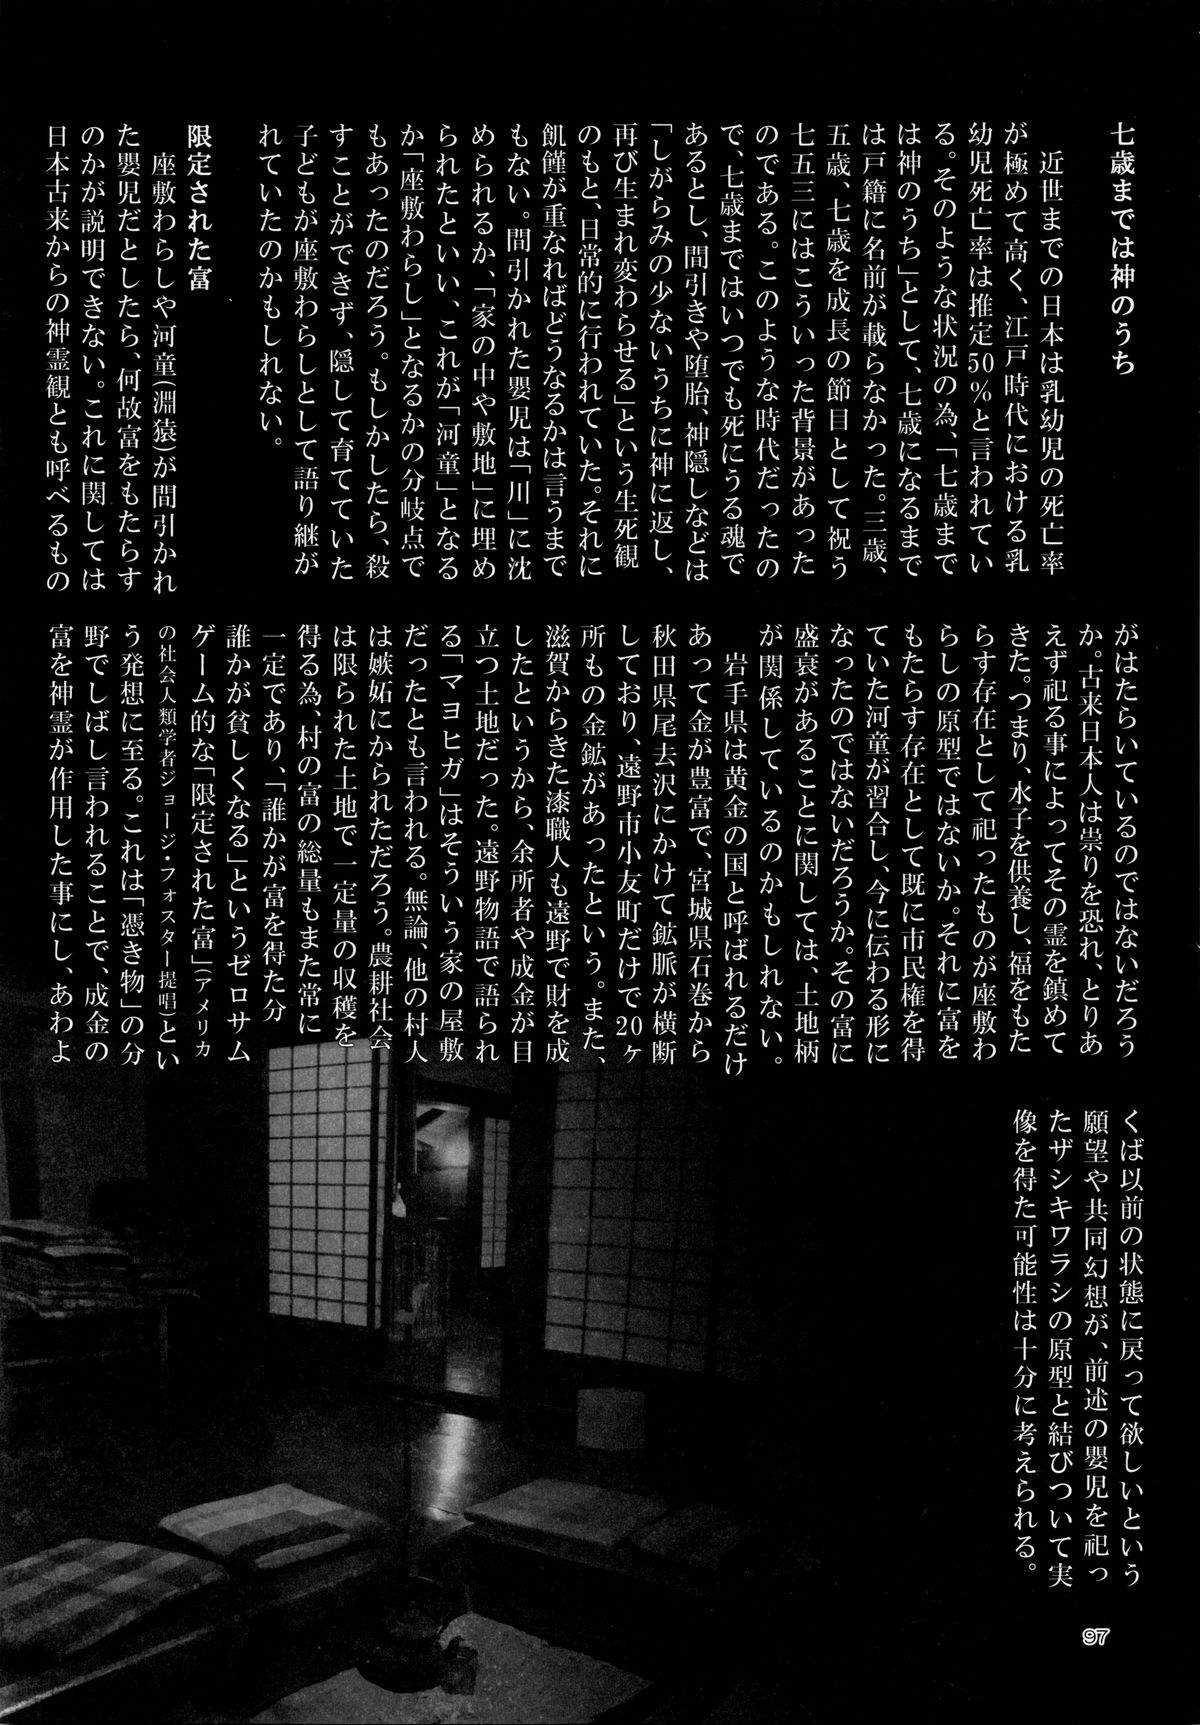 七歳までは神のうち
近世までの日本は乳幼児の死亡率
が極めて高く、江戸時代における乳
幼児死亡率は推定50%と言われてい
る。そのような状況の為、「七歳まで
は神のうち」として、七歳になるまで
は戸籍に名前が載らなかった。三歳、
五歳、七歳を成長の節目として祝う
七五三にはこういった背景があった
のである。このような時代だったの
で、七歳まではいつでも死にうる魂で
あるとし、間引きや堕胎、神隠しなどは
「しがらみの少ないうちに神に返し、
再び生まれ変わらせる」という生死観
のもと、日常的に行われていた。それに
飢饉が重なればどうなるかは言うまで
もない。間引かれた嬰児は「川」に沈
められるか、「家の中や敷地」に埋め
られたといい、これが「河童」となる
か「座敷わらし」となるかの分岐点で
もあったのだろう。もしかしたら、殺
すことができず、隠して育てていた
子どもが座敷わらしとして語り継が
れていたのかもしれない。
限定された富
座敷わらしや河童(淵猿)が間引かれ
た嬰児だとしたら、何故富をもたらす
のかが説明できない。これに関しては
日本古来からの神霊観とも呼べるもの
がはたらいているのではないだろう
か。古来日本人は祟りを恐れ、とりあ
えず祀る事によってその霊を鎮めて
きた。つまり、水子を供養し、福をもた
らす存在として祀ったものが座敷わ
らしの原型ではないか。それに富を
もたらす存在として既に市民権を得
ていた河童が習合し、今に伝わる形に
なったのではないだろうか。その富に
盛衰があることに関しては、土地柄
が関係しているのかもしれない。
岩手県は黄金の国と呼ばれるだけ
あって金が豊富で、宮城県石巻から
秋田県尾去沢にかけて鉱脈が横断
しており、遠野市小友町だけで20ヶ
所もの金鉱があったという。また、
滋賀からきた漆職人も遠野で財を成
したというから、余所者や成金が目
立つ土地だった。遠野物語で語られ
る「マヨヒガ」はそういう家の屋敷
だったとも言われる。無論、他の村人
は嫉妬にかられただろう。農耕社会
は限られた土地で一定量の収穫を
得る為、村の富の総量もまた常に
一定であり、「誰かが富を得た分
誰かが貧しくなる」というゼロサム
ゲーム的な「限定された富」(アメリカ
の社会人類学者ジョージ・フォスター提唱)とい
う発想に至る。これは「憑き物」の分
野でしばし言われることで、成金の
富を神霊が作用した事にし、あわよ
くば以前の状態に戻って欲しいという
願望や共同幻想が、前述の嬰児を祀っ
たザシキワラシの原型と結びついて実
像を得た可能性は十分に考えられる。
97